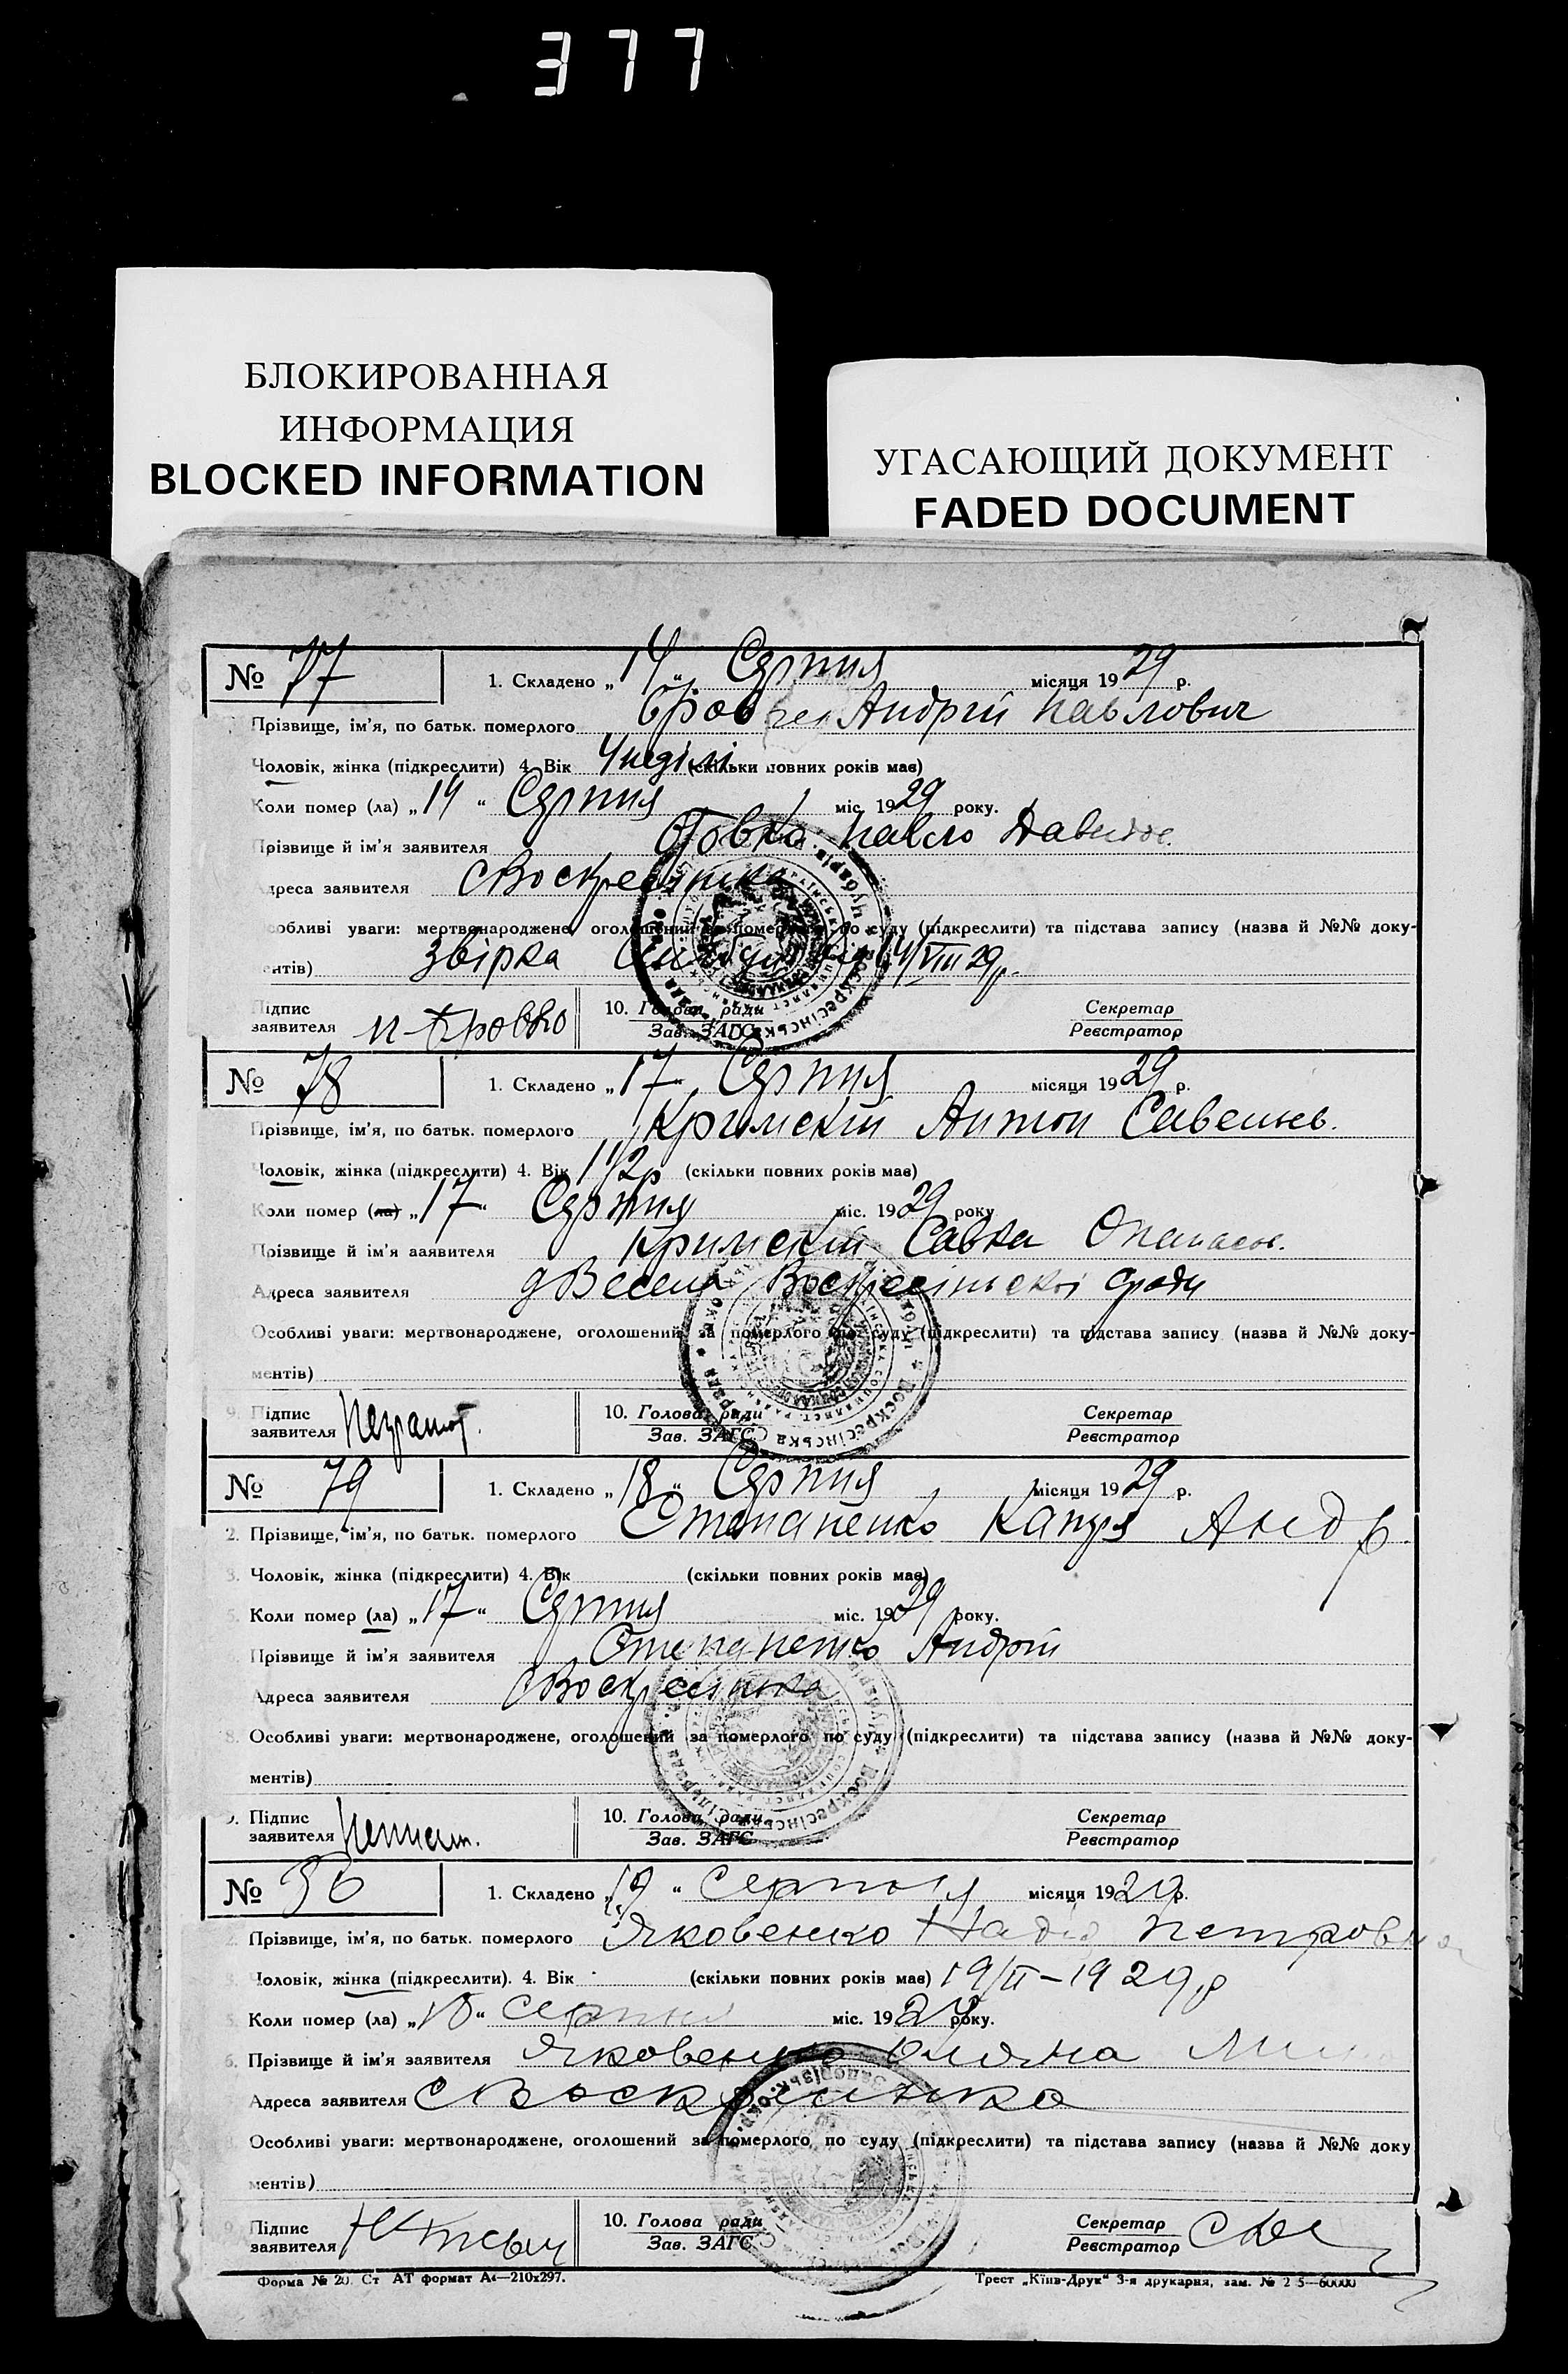 377
БЛОКИРОВАННАЯ
ИНФОРМАЦИЯ
BLOCKED INFORMATION
УГАСАЮЩИЙ ДОКУМЕНТ
FADED DOCUMENT
№ 77 1. Складено „14“ Серпня місяця 1929 р.
Прізвище, ім'я, по батьк. померлого Андрій Павлович
Чоловік, жінка (підкреслити) 4. Вік 4 неділі (скільки повних років має)
Коли помер (ла) „14“ Серпня міс. 1929 року.
Прізвище й ім'я заявителя Павло Давидов.
Адреса заявителя с Воскресінка
Особливі уваги: мертвонароджене, оголошений за померлого по суду (підкреслити) та підстава запису (назва й №№ доку-
ментів) звірка 14/VIII 29р.
Підпис
заявителя
10. Голова ради
Зав. ЗАГС
Секретар
Реєстратор
№ 78 1. Складено „17“ Серпня місяця 1929 р.
Прізвище, ім'я, по батьк. померлого Кримскій Антон Савельев.
Чоловік, жінка (підкреслити) 4. Вік 1 1/2р (скільки повних років має)
Коли помер (ла) „17“ Серпня міс. 1929 року
Прізвище й ім'я заявителя Кримскій Савка Опанасов.
Адреса заявителя д Весела Воскресінської сради
Особливі уваги: мертвонароджене, оголошений за померлого по суду (підкреслити) та підстава запису (назва й №№ доку-
ментів)
9. Підпис
заявителя Неграмот.
10. Голова ради
Зав. ЗАГС
Секретар
Реєстратор
№ 79 1. Складено „18“ Серпня місяця 1929 р.
2. Прізвище, ім'я, по батьк. померлого Степаненко Андр.
3. Чоловік, жінка (підкреслити) 4. Вік (скільки повних років має)
5. Коли помер (ла) „17“ Серпня міс. 1929 року.
Прізвище й ім'я заявителя Степаненко Андрій
Адреса заявителя с Воскресінка
8. Особливі уваги: мертвонароджене, оголошений за померлого по суду (підкреслити) та підстава запису (назва й №№ доку-
ментів)
9. Підпис
заявителя Неписм.
10. Голова ради
Зав. ЗАГС
Секретар
Реєстратор
№ 1. Складено „19“ Серпня місяця 1929р.
2. Прізвище, ім'я, по батьк. померлого Яковенко Надія Петровна
3. Чоловік, жінка (підкреслити). 4. Вік (скільки повних років має) 19/II-1929р
5. Коли помер (ла) „18“ Серпня міс. 1929 року.
6. Прізвище й ім'я заявителя Яковенко Уляна
Адреса заявителя с Воскресінка
Особливі уваги: мертвонароджене, оголошений за померлого по суду (підкреслити) та підстава запису (назва й №№ доку
ментів)
9. Підпис
заявителя
10. Голова ради
Зав. ЗАГС
Секретар
Реєстратор
Форма № 20. Ст АТ формат А4—210х297.
Трест „Київ-Друк“ 3-я друкарня, зам. №